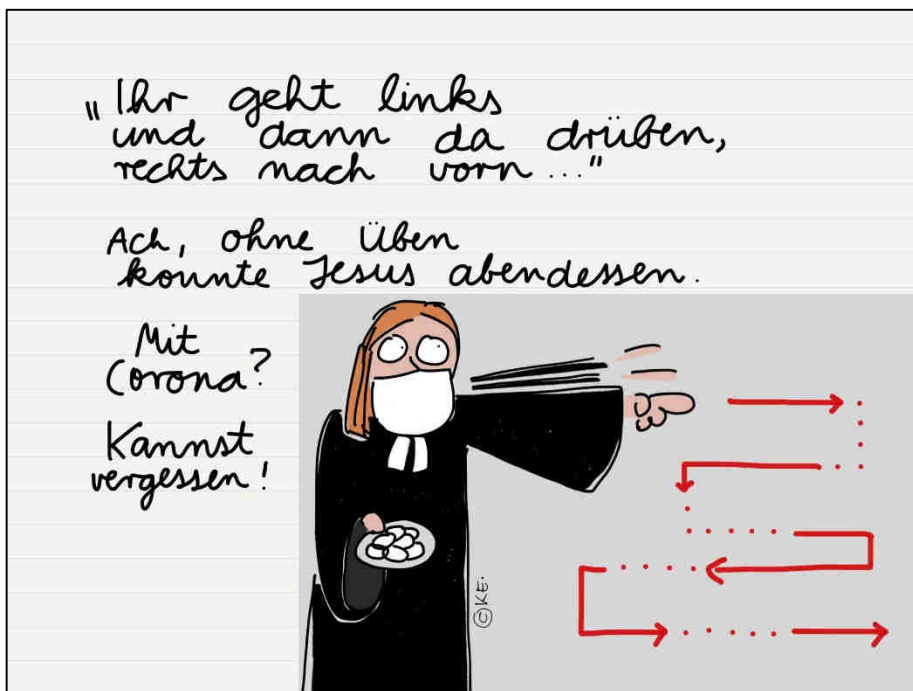 „Ihr geht links
und dann da drüben,
rechts nach vorn..."
Ach, ohne Üben
konnte Jesus abendessen.
Mit
Corona?
Kannst
vergessen!
©KE.